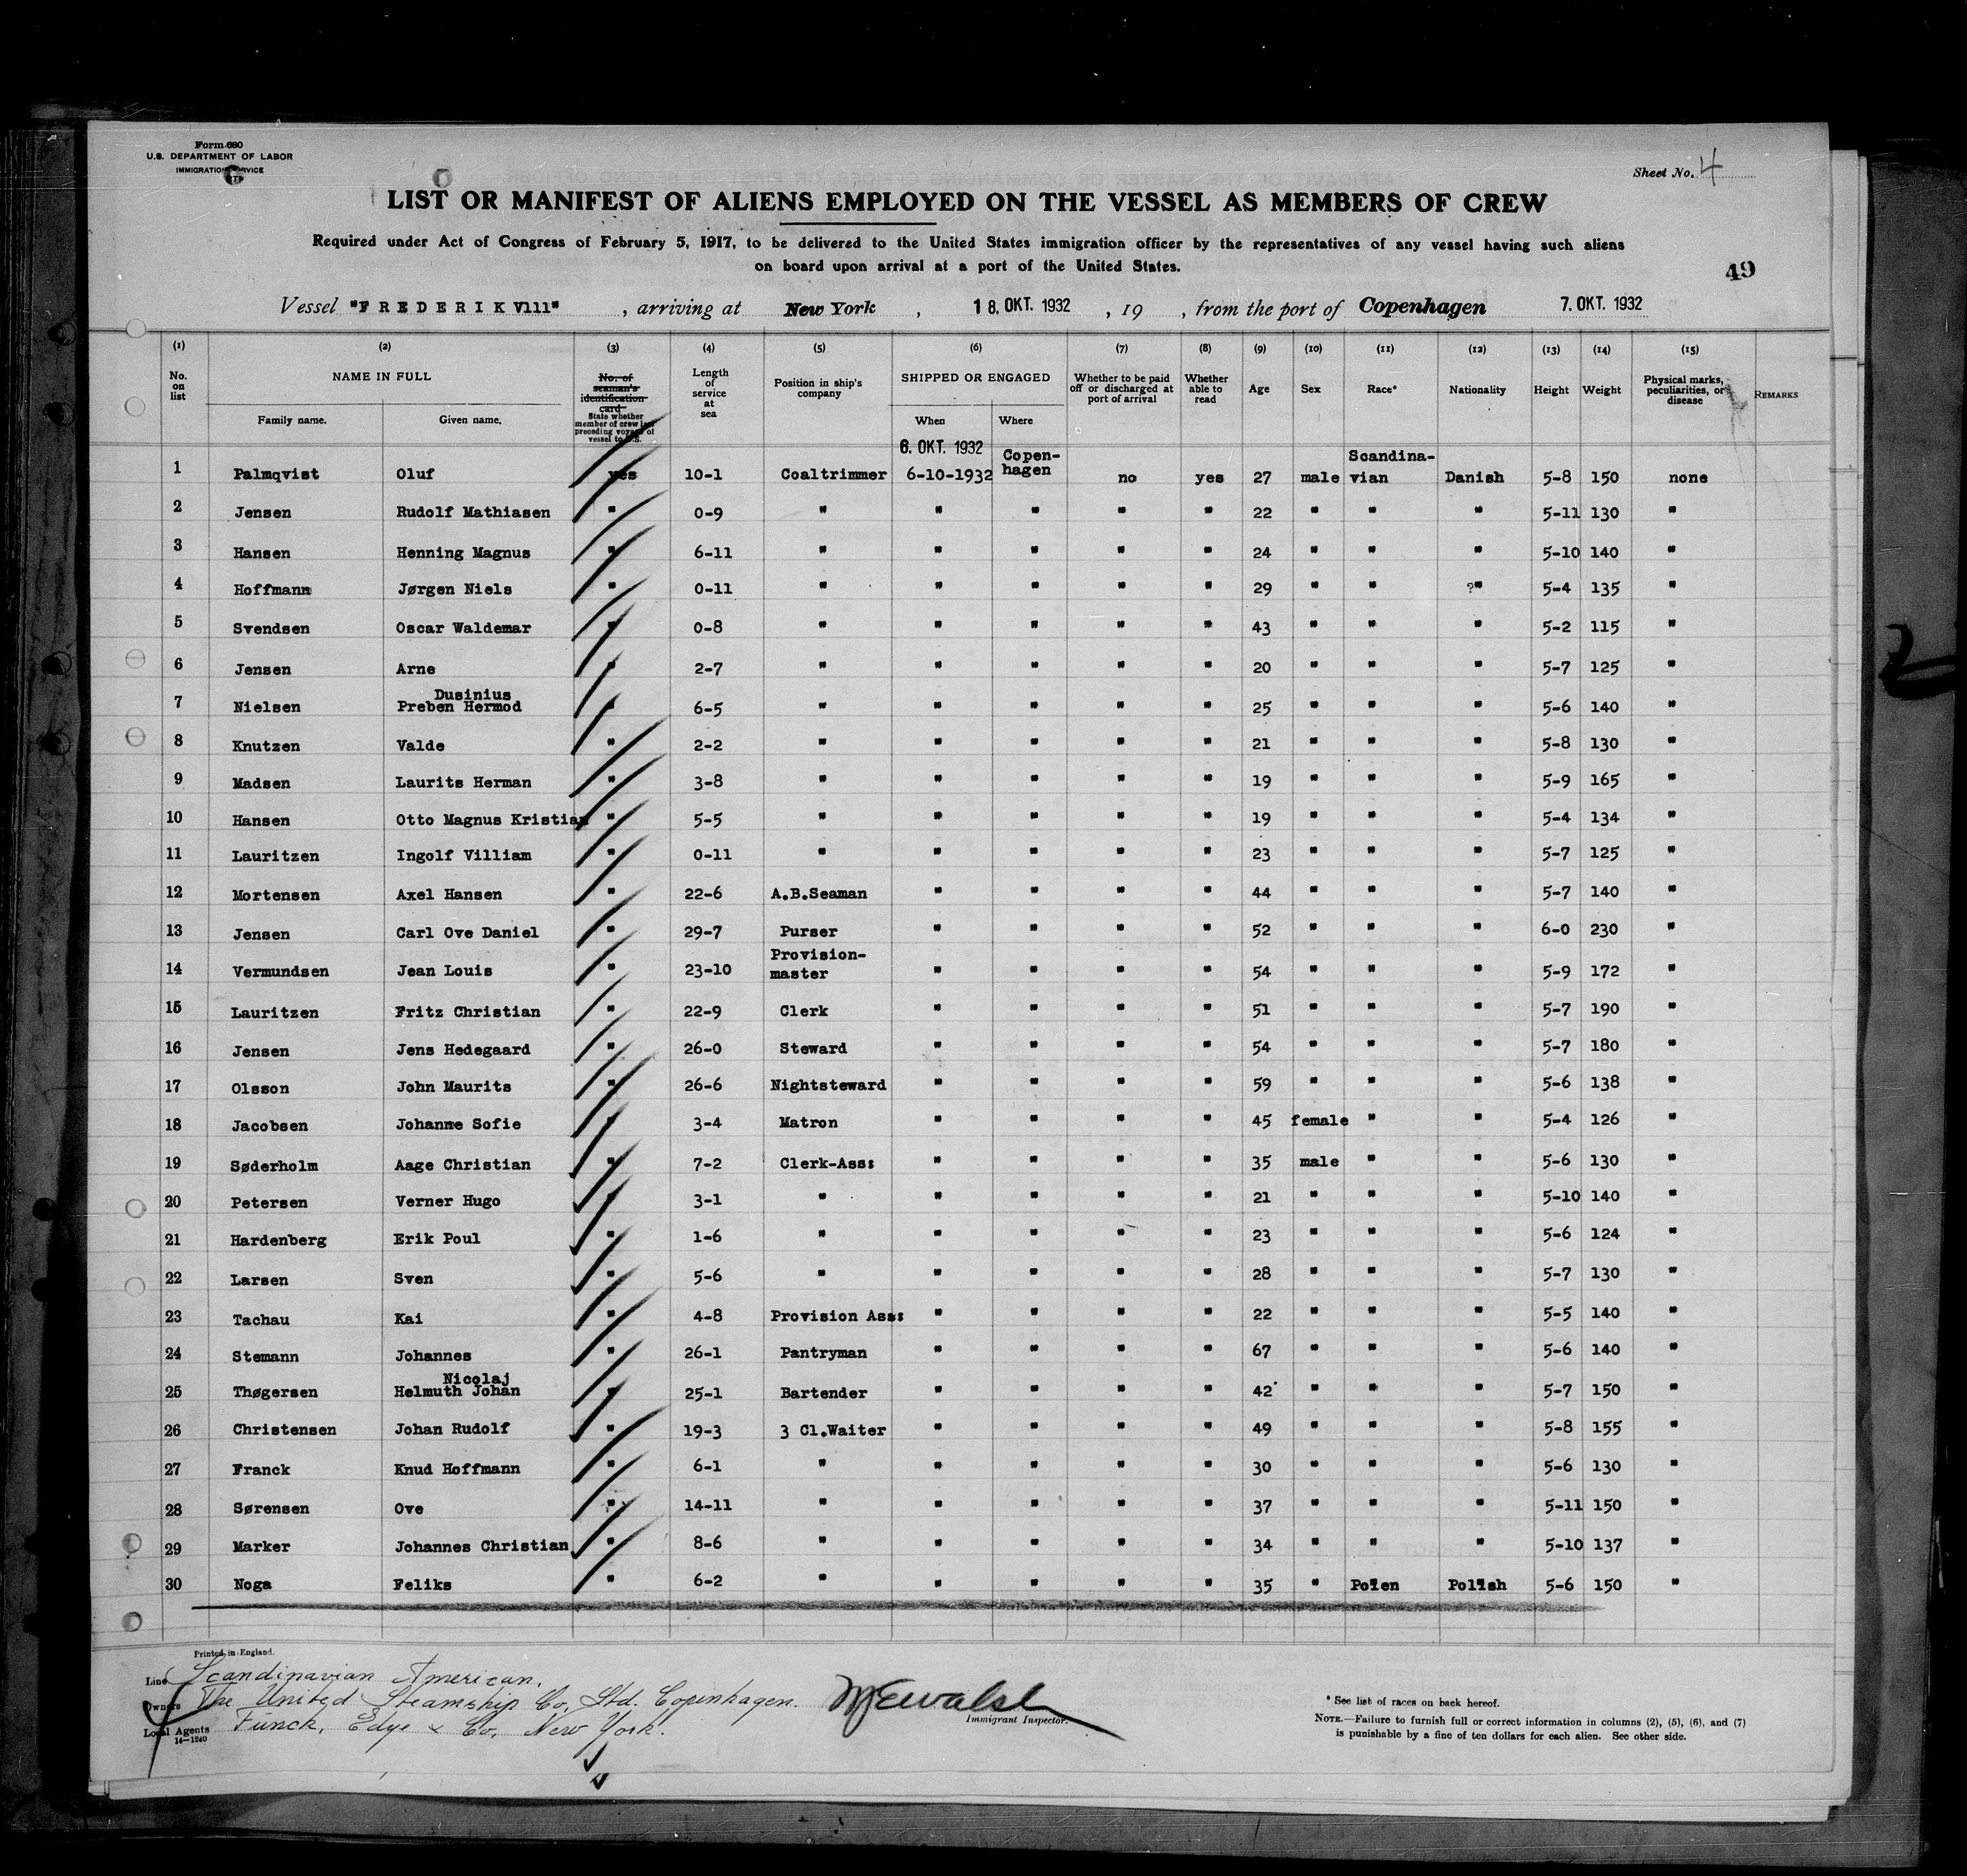 Form 680
U.S. DEPARTMENT OF LABOR
IMMIGRATION SERVICE
Sheet No. 4
LIST OR MANIFEST OF ALIENS EMPLOYED ON THE VESSEL AS MEMBERS OF CREW
Required under Act of Congress of February 5, 1917, to be delivered to the United States immigration officer by the representatives of any vessel having such aliens
on board upon arrival at a port of the United States.
49
Vessel "FREDERIK Vlll", arriving at New York, 18. OKT. 1932, 19 , from the port of Copenhagen 7. OKT. 1932
(1) (2) (3) (4) (5) (6) (7) (8) (9) (10) (11) (12) (13) (14) (15)
No. on list NAME IN FULL Family name. Given name. No. of seaman's identification card State whether member of crew last preceding voyage of vessel to U.S. Length of service at sea Position in ship's company SHIPPED OR ENGAGED When Where Whether to be paid off or discharged at port of arrival Whether able to read Age Sex Race* Nationality Height Weight Physical marks, peculiarities, or disease REMARKS
6. OKT. 1932
1 Palmqvist Oluf yes 10-1 Coaltrimmer 6-10-1932 Copen-hagen no yes 27 male Scandina-vian Danish 5-8 150 none
2 Jensen Rudolf Mathiasen " 0-9 " " " " " 22 " " " 5-11 130 "
3 Hansen Henning Magnus " 6-11 " " " " " 24 " " " 5-10 140 "
4 Hoffmann Jørgen Niels " 0-11 " " " " " 29 " " ?" 5-4 135 "
5 Svendsen Oscar Waldemar " 0-8 " " " " " 43 " " " 5-2 115 "
6 Jensen Arne " 2-7 " " " " " 20 " " " 5-7 125 "
7 Nielsen Dusinius Preben Hermod " 6-5 " " " " " 25 " " " 5-6 140 "
8 Knutzen Valde " 2-2 " " " " " 21 " " " 5-8 130 "
9 Madsen Laurits Herman " 3-8 " " " " " 19 " " " 5-9 165 "
10 Hansen Otto Magnus Kristian " 5-5 " " " " " 19 " " " 5-4 134 "
11 Lauritzen Ingolf Villiam " 0-11 " " " " " 23 " " " 5-7 125 "
12 Mortensen Axel Hansen " 22-6 A.B.Seaman " " " " 44 " " " 5-7 140 "
13 Jensen Carl Ove Daniel " 29-7 Purser " " " " 52 " " " 6-0 230 "
14 Vermundsen Jean Louis " 23-10 Provision-master " " " " 54 " " " 5-9 172 "
15 Lauritzen Fritz Christian " 22-9 Clerk " " " " 51 " " " 5-7 190 "
16 Jensen Jens Hedegaard " 26-0 Steward " " " " 54 " " " 5-7 180 "
17 Olsson John Maurits " 26-6 Nightsteward " " " " 59 " " " 5-6 138 "
18 Jacobsen Johanne Sofie " 3-4 Matron " " " " 45 female " " 5-4 126 "
19 Søderholm Aage Christian " 7-2 Clerk-Ass: " " " " 35 male " " 5-6 130 "
20 Petersen Verner Hugo " 3-1 " " " " " 21 " " " 5-10 140 "
21 Hardenberg Erik Poul " 1-6 " " " " " 23 " " " 5-6 124 "
22 Larsen Sven " 5-6 " " " " " 28 " " " 5-7 130 "
23 Tachau Kai " 4-8 Provision Ass: " " " " 22 " " " 5-5 140 "
24 Stemann Johannes " 26-1 Pantryman " " " " 67 " " " 5-6 140 "
25 Thøgersen Nicolaj Helmuth Johan " 25-1 Bartender " " " " 42 " " " 5-7 150 "
26 Christensen Johan Rudolf " 19-3 3 Cl.Waiter " " " " 49 " " " 5-8 155 "
27 Franck Knud Hoffmann " 6-1 " " " " " 30 " " " 5-6 130 "
28 Sørensen Ove " 14-11 " " " " " 37 " " " 5-11 150 "
29 Marker Johannes Christian " 8-6 " " " " " 34 " " " 5-10 137 "
30 Noga Feliks " 6-2 " " " " " 35 " Polen Polish 5-6 150 "
Printed in England.
Line Scandinavian American.
Owners The United Steamship Co, Ltd. Copenhagen.
Local Agents Funck, Edye & Co, New York.
14—1240
Immigrant Inspector.
* See list of races on back hereof.
NOTE.—Failure to furnish full or correct information in columns (2), (5), (6), and (7)
is punishable by a fine of ten dollars for each alien. See other side.
2